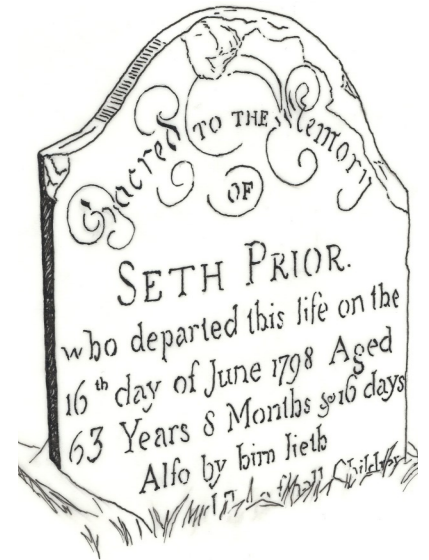 Sacred TO THE Memory
OF
SETH PRIOR.
who departed this life on the
16th day of June 1798 Aged
63 Years 8 Months & 16 days
Alſo by him lieth